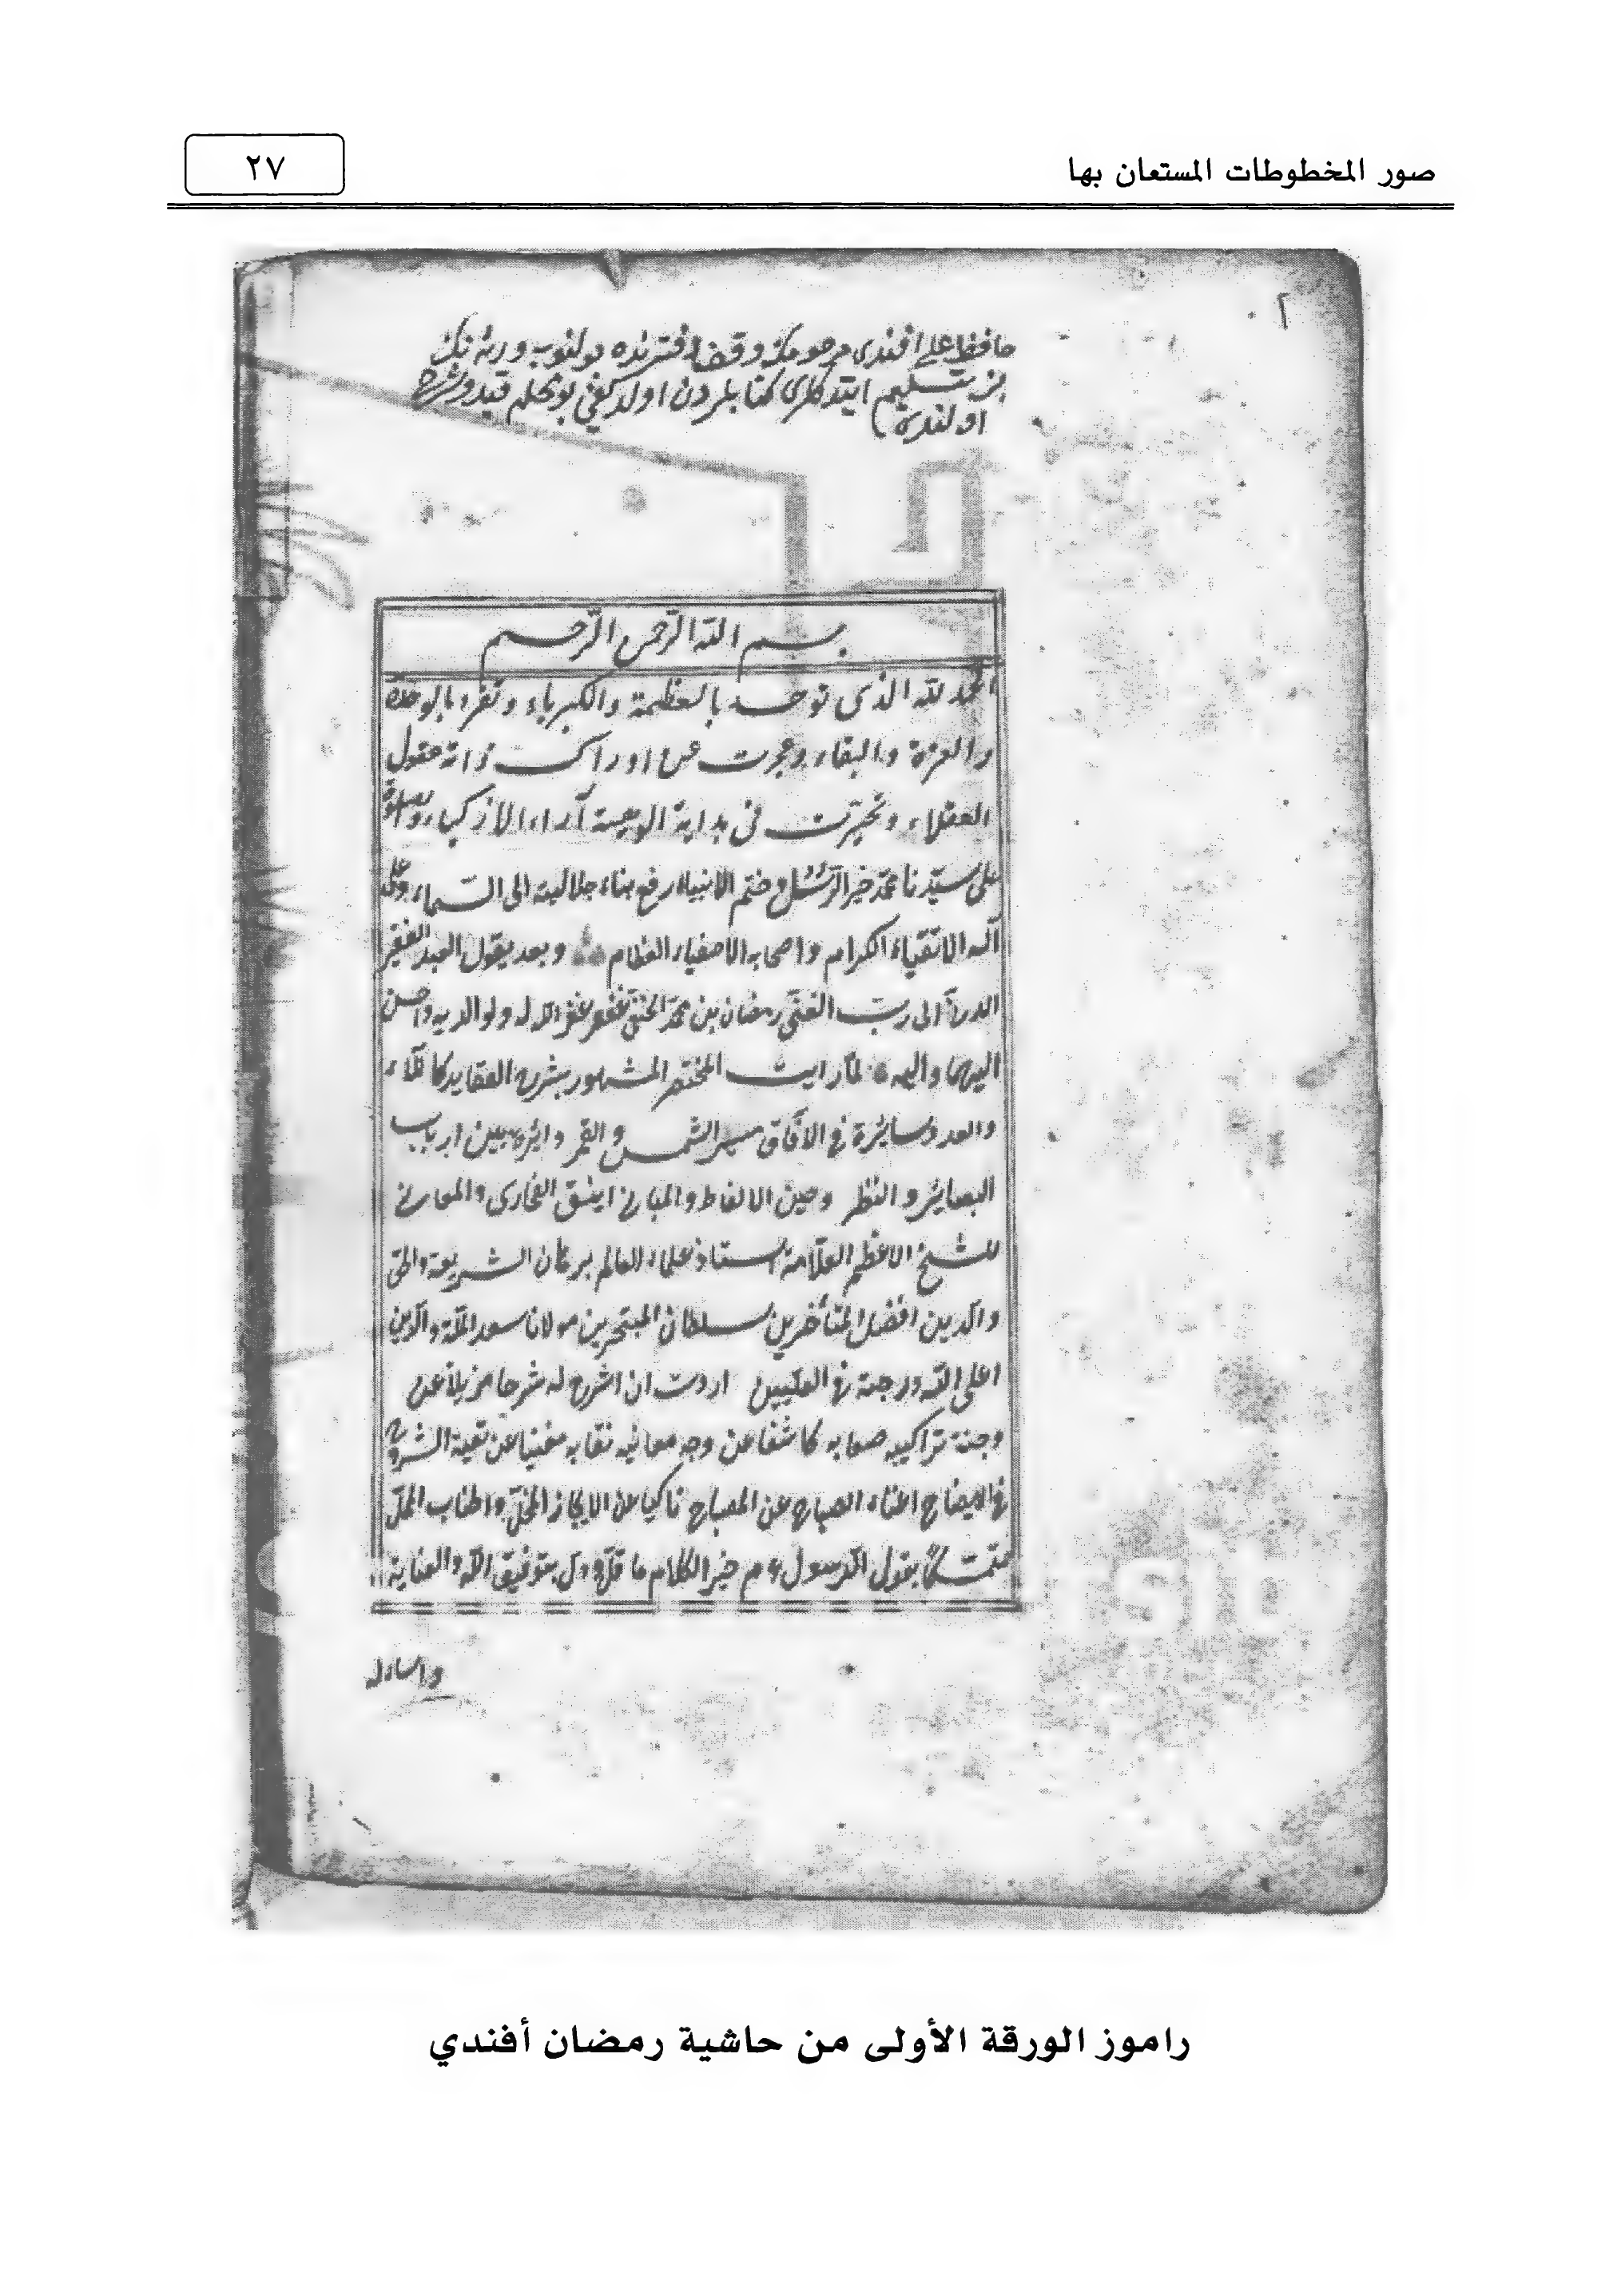 صور المخطوطات المستعان بها
٢٧
حافظ علي افندی مرحومك وقف دفترنده بولنوب ورثه نك
بزه تسليم ايتدكلری كتابلردن اولديغی بو محله قيد وشرح
اولندی
بسم الله الرحمن الرحيم
الحمد لله الذی توحد بالعظمة والكبرياء وتفرد بالوحدة
والعزة والبقاء وعجزت عن ادراك ذاته عقول
العقلاء وتحيرت فی بداية الوهيته آراء الاذكياء والصلوة
على سيدنا محمد خير الرسل وختم الانبياء رفع بناء جلالته الى السماء وعلى
آله الاتقياء الكرام واصحابه الاصفياء العظام وبعد يقول العبد الفقير
الى رب الغنی رمضان بن محمد الحنفی غفر له ولوالديه واحسن
اليهما واليه لما رايت المختصر المشهور بشرح العقايد كاملاء
سائرة فی الآفاق مسير الشمس والقمر دائرة بين ارباب
البصاير والنظر وحين الالفاظ والمبانی انيق والمعانی
للشيخ الاعظم العلامة استاذ علماء العالم برهان الشريعة والحق
والدين افضل المتأخرين سلطان المتبحرين مولانا سعد الملة والدين
اعلى الله درجته فی العليين اردت ان اشرح له شرحا مزيلا عن
وجنة تراكيبه صعابه كاشفا عن وجه معانيه نقابه مغنيا عن بقية الشروح
فی الايضاح اغناء الصباح عن المصباح ناكبا عن الايجاز المخل واطناب الممل
متمسكا بقول الرسول عم خير الكلام ما قل ودل بتوفيق الله والعناية
راموز الورقة الأولى من حاشية رمضان أفندي